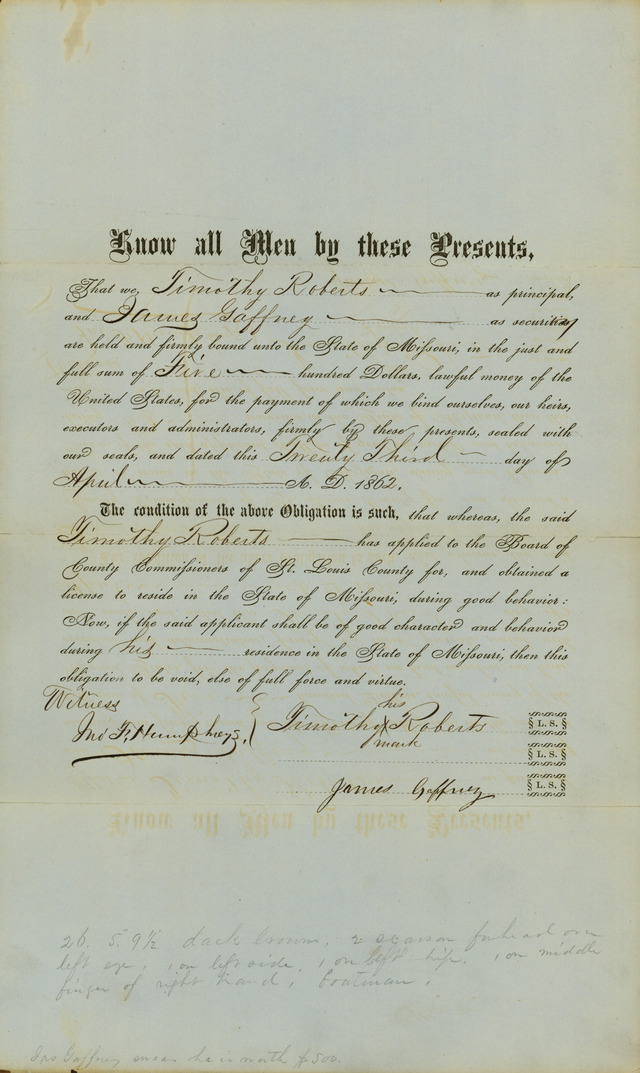 Know all Men by these Presents,
That we, Timothy Roberts as principal,
and James Gaffney as security
are held and firmly bound unto the State of Missouri, in the just and
full sum of Five hundred Dollars, lawful money of the
United States, for the payment of which we bind ourselves, our heirs,
executors and administrators, firmly by these presents, sealed with
our seals, and dated this Twenty Third day of
April A. D. 1862.
The condition of the above Obligation is such, that whereas, the said
Timothy Roberts has applied to the Board of
County Commissioners of St. Louis County for, and obtained a
license to reside in the State of Missouri, during good behavior:
Now, if the said applicant shall be of good character and behavior
during his residence in the State of Missouri, then this
obligation to be void, else of full force and virtue.
Witness
Jno F. Humphreys,
his
Timothy X Roberts L. S.
mark
L. S.
James Gaffney L. S.
26. 5. 9 1/2 dark brown, 2 on forehead over
left eye, 1 on left side, 1 on left hip, 1 on middle
finger of right hand, boatman,
Jas Gaffney he is worth $500.